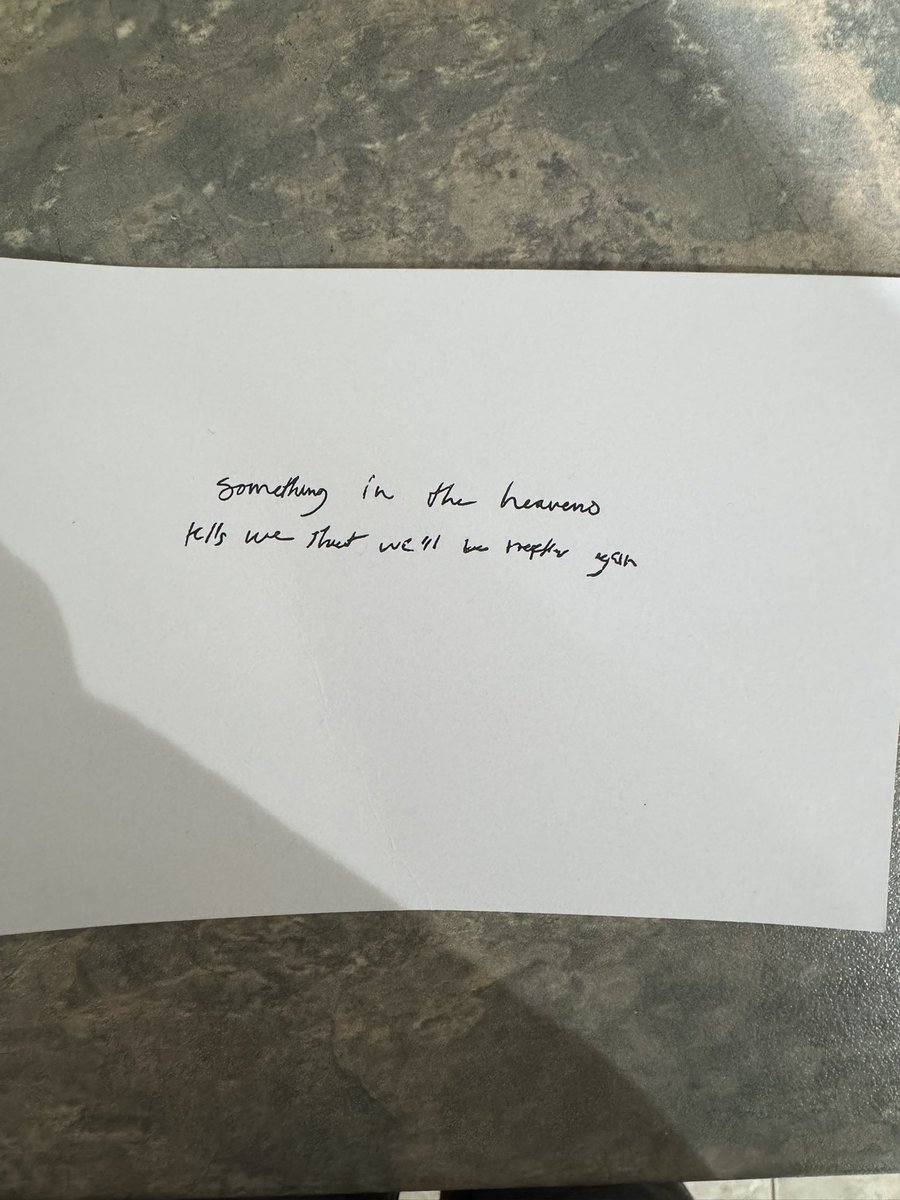 something in the heavens
tells me that we'll be together again